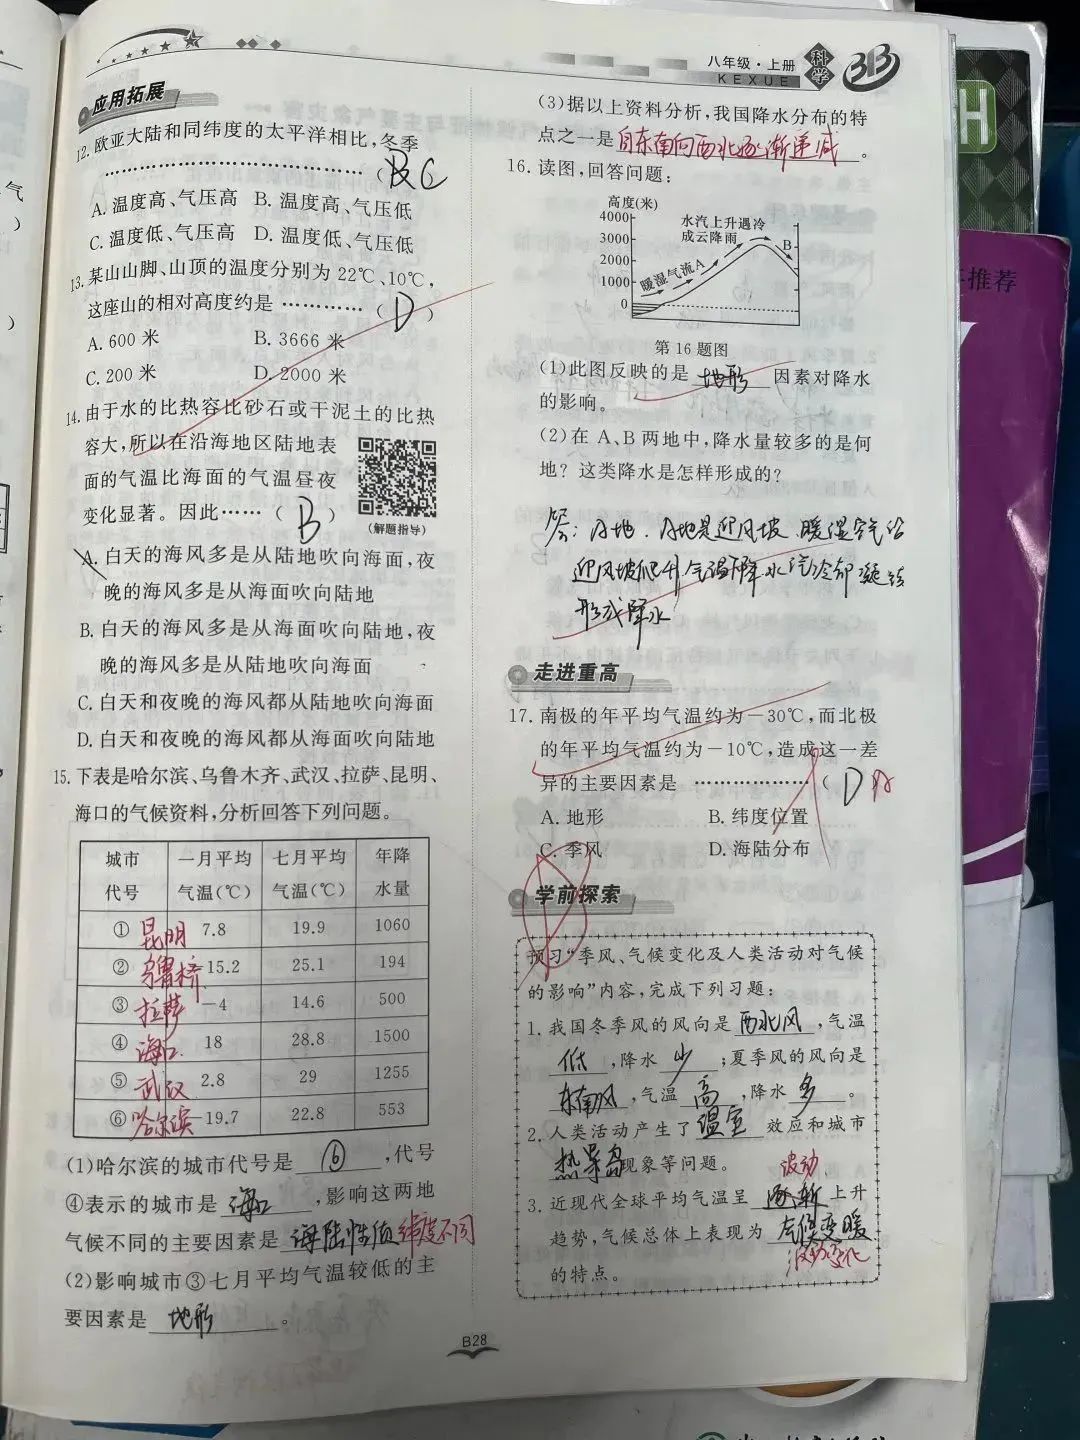 八年级·上册
KEXUE
科学
应用拓展
12.欧亚大陆和同纬度的太平洋相比,冬季
………………………………( C )
A.温度高、气压高 B.温度高、气压低
C.温度低、气压高 D.温度低、气压低
13.某山山脚、山顶的温度分别为22℃、10℃,
这座山的相对高度约是 …………( D )
A.600米 B.3666米
C.200米 D.2000米
14.由于水的比热容比砂石或干泥土的比热
容大,所以在沿海地区陆地表
面的气温比海面的气温昼夜
变化显著。因此……( B )
(解题指导)
A.白天的海风多是从陆地吹向海面,夜
晚的海风多是从海面吹向陆地
B.白天的海风多是从海面吹向陆地,夜
晚的海风多是从陆地吹向海面
C.白天和夜晚的海风都从陆地吹向海面
D.白天和夜晚的海风都从海面吹向陆地
15.下表是哈尔滨、乌鲁木齐、武汉、拉萨、昆明、
海口的气候资料,分析回答下列问题。
城市代号 一月平均气温(℃) 七月平均气温(℃) 年降水量
① 昆明 7.8 19.9 1060
② -15.2 25.1 194
③ 拉萨 -4 14.6 500
④ 海口 18 28.8 1500
⑤ 武汉 2.8 29 1255
⑥ 哈尔滨 -19.7 22.8 553
(1)哈尔滨的城市代号是 ⑥ ,代号
④表示的城市是 海口 ,影响这两地
气候不同的主要因素是 海陆性质 纬度不同
(2)影响城市③七月平均气温较低的主
要因素是 地形 。
(3)据以上资料分析,我国降水分布的特
点之一是 自东南向西北逐渐递减 。
16.读图,回答问题:
高度(米)
4000
3000
2000
1000
0
水汽上升遇冷
成云降雨
暖湿气流A
B
第16题图
(1)此图反映的是 地形 因素对降水
的影响。
(2)在A、B两地中,降水量较多的是何
地?这类降水是怎样形成的?
答:A地.A地是迎风坡、暖湿空气沿
迎风坡爬升气温下降水汽冷却凝结
形成降水
走进重高
17.南极的年平均气温约为-30℃,而北极
的年平均气温约为-10℃,造成这一差
异的主要因素是 ………………( D A
A.地形 B.纬度位置
C.季风 D.海陆分布
学前探索
预习“季风、气候变化及人类活动对气候
的影响”内容,完成下列习题:
1.我国冬季风的风向是 西北风 ,气温
低 ,降水 少 ;夏季风的风向是
东南风 ,气温 高 ,降水 多 。
2.人类活动产生了 温室 效应和城市
热导岛 现象等问题。
波动
3.近现代全球平均气温呈 逐渐 上升
趋势,气候总体上表现为 气候变暖
波动变化
的特点。
B28
推荐